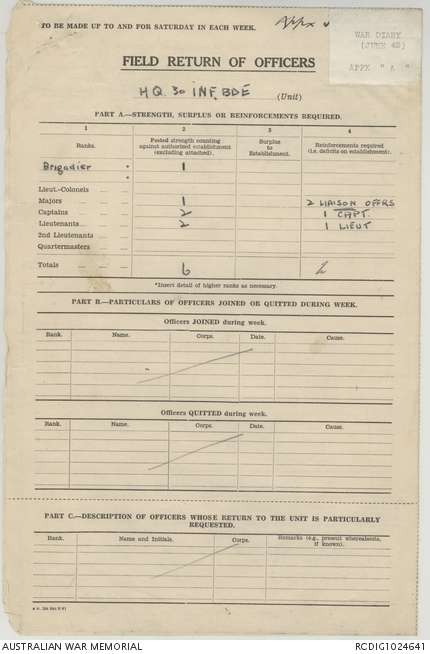 TO BE MADE UP TO AND FOR SATURDAY IN EACH WEEK.
Appx
WAR DIARY
(JUNE 42)
APPX "A"
FIELD RETURN OF OFFICERS
HQ. 30 INF. BDE
(Unit)
PART A.—STRENGTH, SURPLUS OR REINFORCEMENTS REQUIRED.
1 2 3 4
Ranks. Posted strength counting against authorized establishment (excluding attached). Surplus to Establishment. Reinforcements required (i.e. deficits on establishment).
Brigadier * 1
*
Lieut.-Colonels
Majors 1 2 LIAISON OFFRS
Captains 2 1 CAPT
Lieutenants 2 1 LIEUT
2nd Lieutenants
Quartermasters
Totals 6 2
*Insert detail of higher ranks as necessary.
PART B.—PARTICULARS OF OFFICERS JOINED OR QUITTED DURING WEEK.
Officers JOINED during week.
Rank. Name. Corps. Date. Cause.
Officers QUITTED during week.
Rank. Name. Corps. Date. Cause.
PART C.—DESCRIPTION OF OFFICERS WHOSE RETURN TO THE UNIT IS PARTICULARLY
REQUESTED.
Rank. Name and Initials. Corps. Remarks (e.g., present whereabouts, if known).
AUSTRALIAN WAR MEMORIAL RCDIG1024641